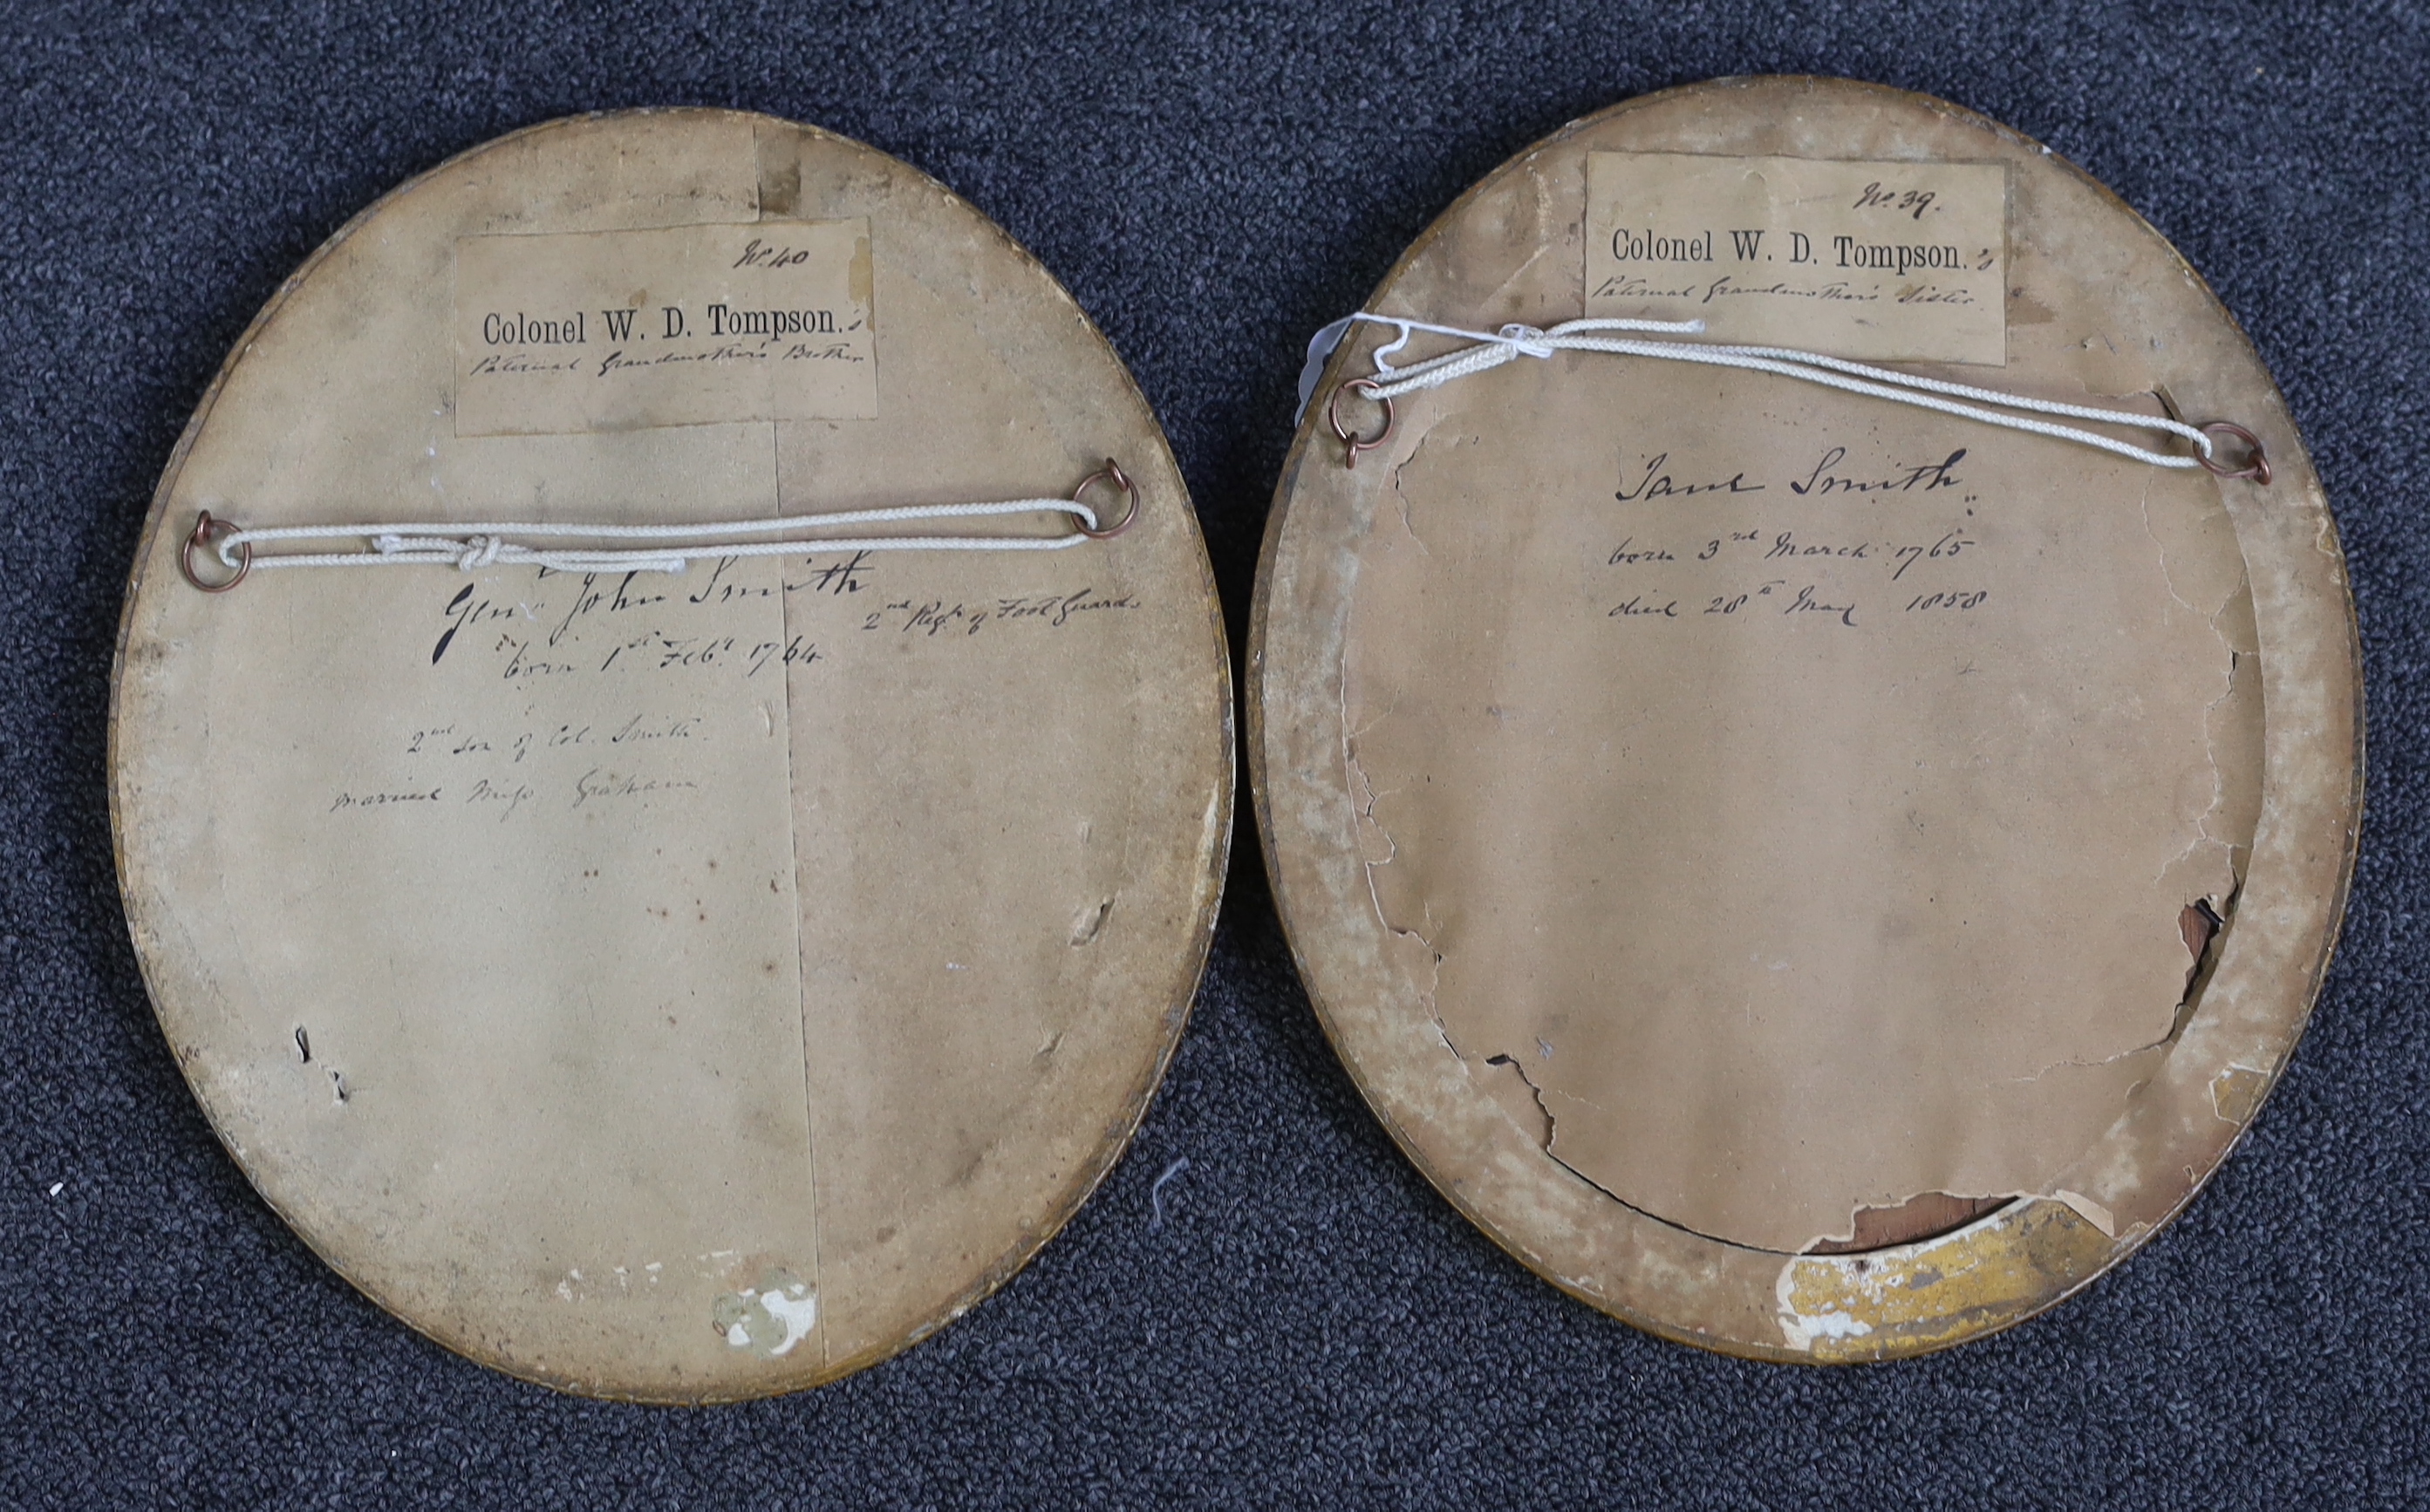 No. 40
Colonel W. D. Tompson.'s
Paternal Grandmother's Brother
Genl John Smith
2nd Regt of Foot Guards
born 1st Feby 1764
2nd son of Col. Smith.
married Miss Graham
No. 39.
Colonel W. D. Tompson.'s
Paternal Grandmother's Sister
Jane Smith
born 3rd March 1765
died 28th May 1858